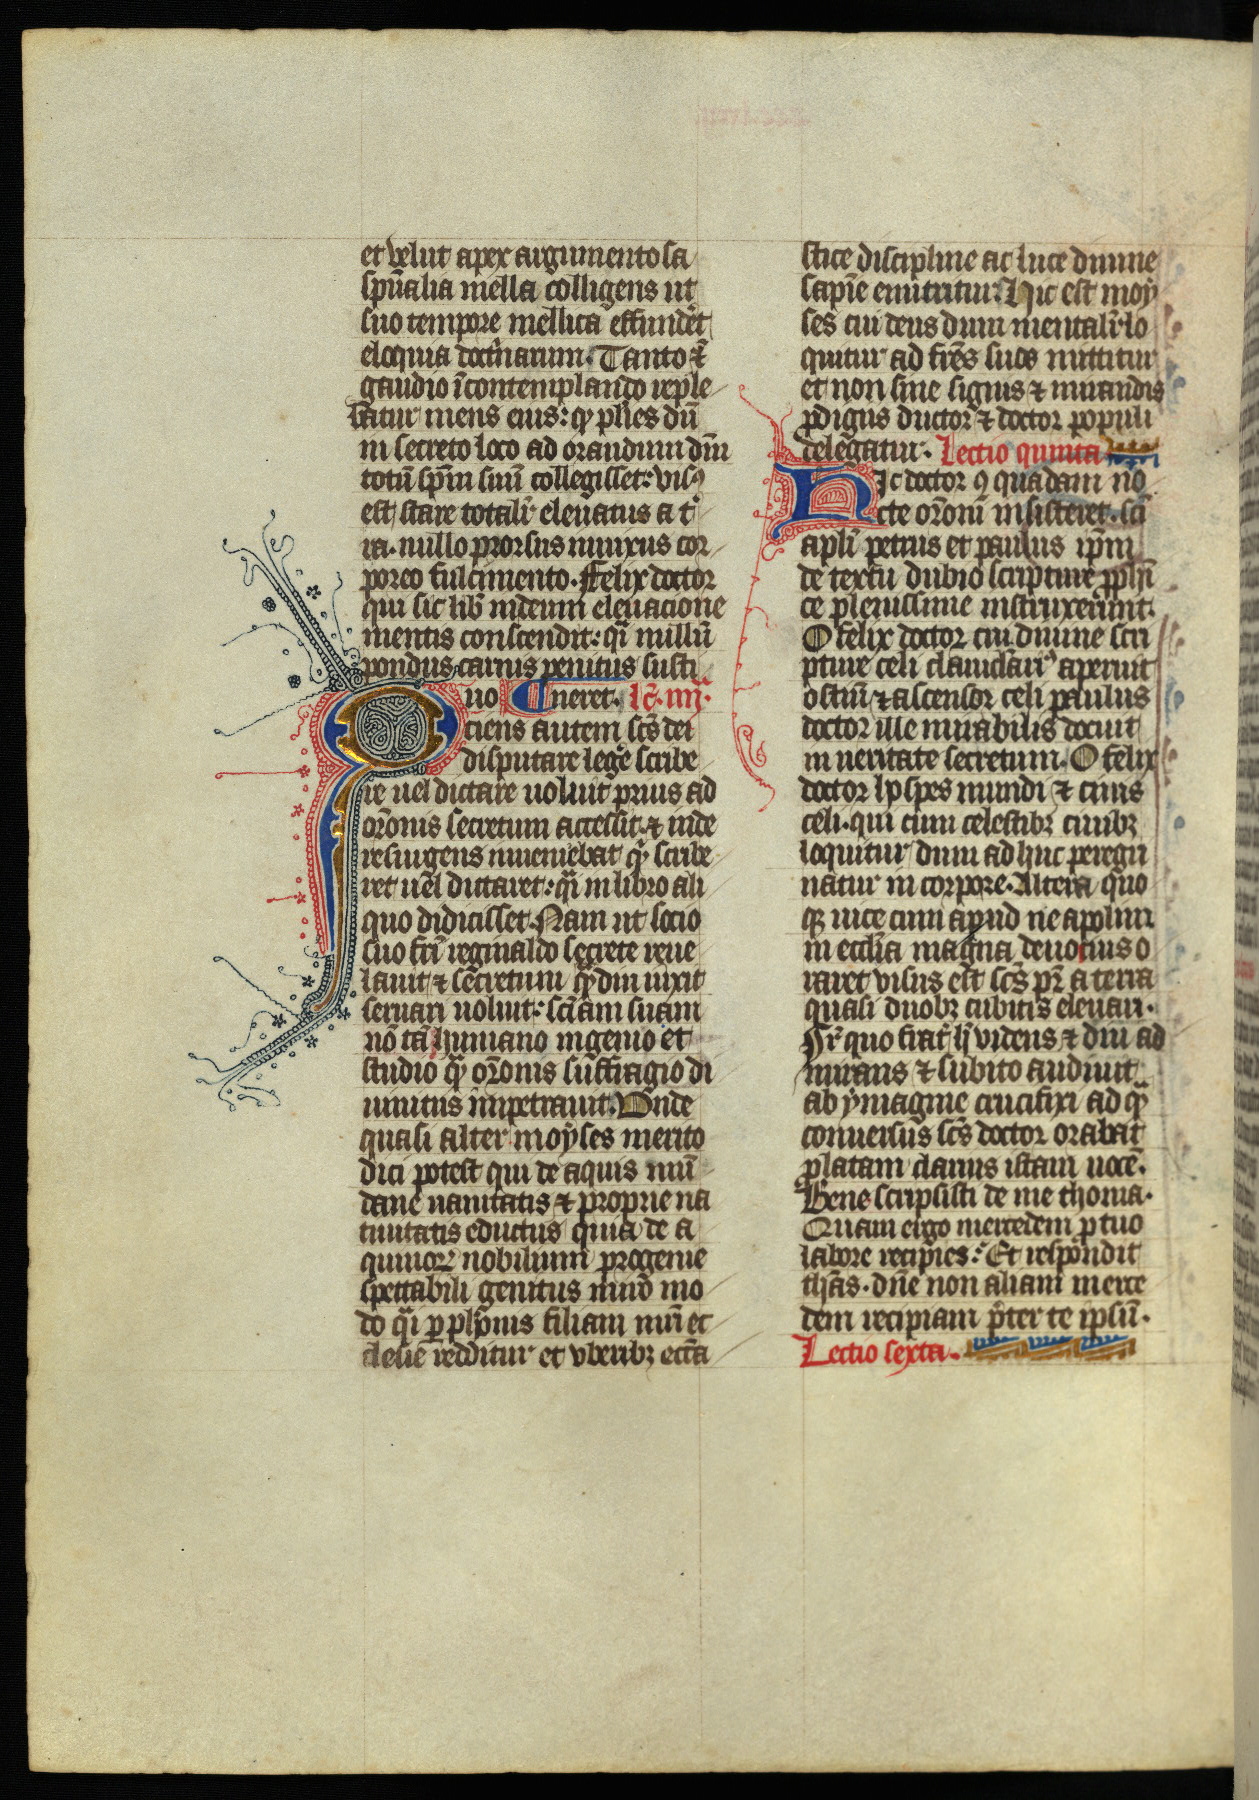 et velut apex argumentosa
spūalia mella colligens ut
suo tempore mellica effundet
eloquia doctrinarum. Tanto
gaudio ī contemplando reple
batur mens eius: qp plies dū
in secreto loco ad orandum dm̄
totū spm̄ suū collegisset: visꝰ
est stare totalit̄ eleuatus a t̄
ra. nullo prorsus innixus cor
poreo fulcimento. Felix doctor
qui sic lib̄ mdeum eleuacione
mentis conscendit: qi nullū
pondus carnis penitus susti
neret. lc̄. iiij.
Quociens autem scs̄ dei
disputare legē scribe
re uel dictare uoluit prius ad
orōnis secretum accessit. et inde
resurgens inueniebat qd scribe
ret uel dictaret: qi in libro ali
quo didicisset. Nam ut socio
suo frī reginaldo secrete reue
lauit et secretum qd diu iuxit
seruari uoluit: sciam suam
nō tā humano ingenio et
studio qȝ orōnis suffragio di
uinitus impetrauit. Vnde
quasi alter moyses merito
dici potest qui de aquis mū
dane uanitatis et proprie na
tiuitatis eductus quia de a
quinorꝝ nobilium progenie
spectabili genitus miro mo
do qi p pphōnis filiam mīi et
cleuē redditur et vberibꝫ ecc̄a
stice discipline ac luce diuine
sapīe enutritur. Hic est moy
ses cui deus dum mentalit̄ lo
quitur ad frēs suos mittitur
et non sine signis et mirandis
pdigiis ductor et doctor populi
delegatur. Lectio quinta
Hic doctor ꝯ quadam no
cte orōni insisteret. sc̄i
apl̄i petrus et paulus ipm̄
de textu dubio scripture pph̄i
ce plenissime instruxerunt.
O felix doctor cui diuine scri
pture celi clauicl̄ariꝰ aperuit
ostiū et ascensor celi paulus
doctor ille mirabilis docuit
in ueritate secretum. O felix
doctor hꝰ spes mundi et ciuis
celi. qui cum celestibꝫ ciuibꝫ
loquitur dum adhuc peregri
natur in corpore. Altera quo
qꝫ uice cum apud neapolim
in ecclīa magna deuotius o
raret visus est scs̄ pr̄ a terra
quasi duobꝫ cubitis eleuari.
Pr̄ quo frat̄ h̄ videns et diu ad
mirans et subito audiuit
ab ymagine crucifixi ad qȝ
conuersus scs̄ doctor orabat
platam clarius istam uocē.
Bene scripsisti de me thoma.
Quam ergo mercedem p tuo
labore recipies: Et respondit
thas. dn̄e non aliam merce
dem recipiam pter te ipsū.
Lectio sexta.